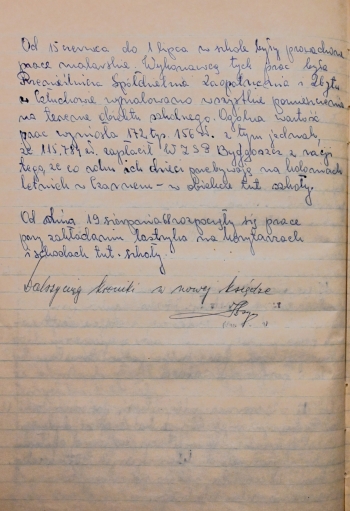 Od 15 czerwca do 1 lipca w szkole były prowadzone
prace malarskie. Wykonawcą tych prac była
Rzemieślnicza Spółdzielnia Zaopatrzenia i Zbytu
w Człuchowie wymalowano wszystkie pomieszczenia
na terenie obiektu szkolnego. Ogólna wartość
prac wyniosła 172 tys. z tym jednak,
że 115.789 zł. zapłacił WZSP Bydgoszcz z racji
tego, że co roku ich dzieci przebywają na koloniach
letnich w Czarnem - w obiekcie tut. szkoły.
Od dnia 19 sierpnia rozpoczęły się prace
przy zakładaniu lastryko na korytarzach
i schodach tut. szkoły.
Dalszy ciąg kroniki w nowej księdze